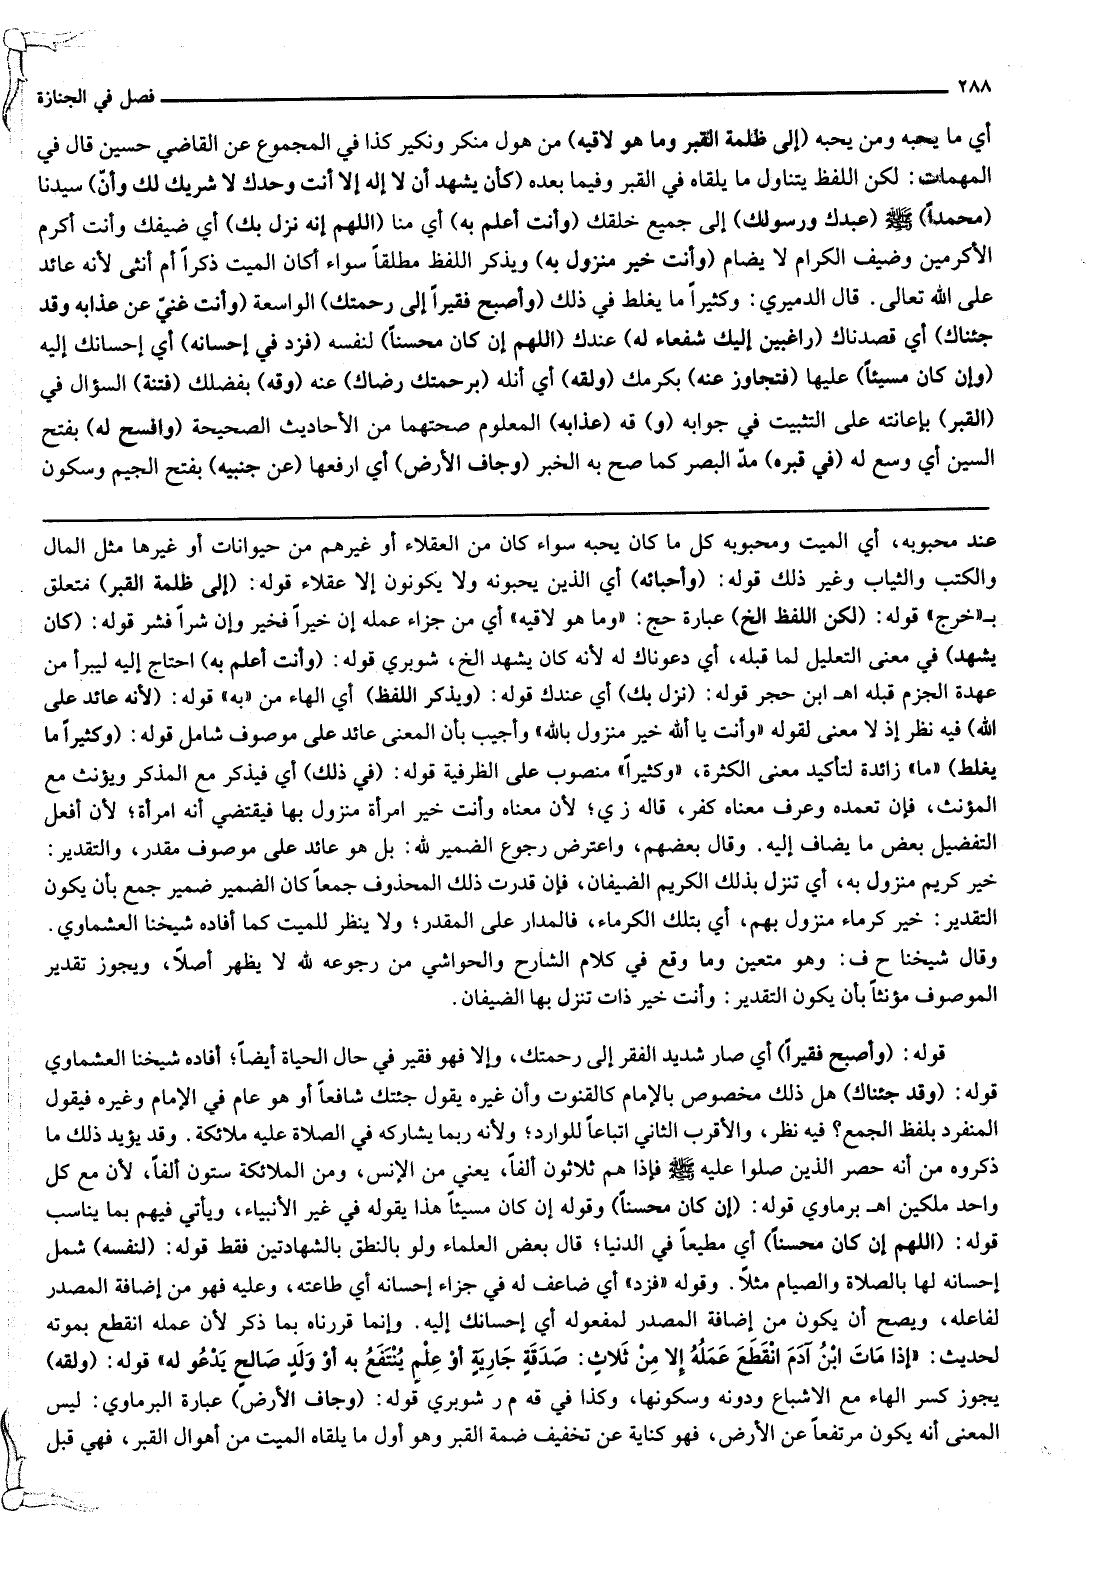 ٢٨٨
فصل في الجنازة
أي ما يحبه ومن يحبه (إلى ظلمة القبر وما هو لاقيه) من هول منكر ونكير كذا في المجموع عن القاضي حسين قال في
المهمات: لكن اللفظ يتناول ما يلقاه في القبر وفيما بعده (كأن يشهد أن لا إله إلا أنت وحدك لا شريك لك وأنّ) سيدنا
(محمداً) ﷺ (عبدك ورسولك) إلى جميع خلقك (وأنت أعلم به) أي منا (اللهم إنه نزل بك) أي ضيفك وأنت أكرم
الأكرمين وضيف الكرام لا يضام (وأنت خير منزول به) ويذكر اللفظ مطلقاً سواء أكان الميت ذكراً أم أنثى لأنه عائد
على الله تعالى. قال الدميري: وكثيراً ما يغلط في ذلك (وأصبح فقيراً إلى رحمتك) الواسعة (وأنت غنيّ عن عذابه وقد
جئناك) أي قصدناك (راغبين إليك شفعاء له) عندك (اللهم إن كان محسناً) لنفسه (فزد في إحسانه) أي إحسانك إليه
(وإن كان مسيئاً) عليها (فتجاوز عنه) بكرمك (ولقه) أي أنله (برحمتك رضاك) عنه (وقه) بفضلك (فتنة) السؤال في
(القبر) بإعانته على التثبيت في جوابه (و) قه (عذابه) المعلوم صحتهما من الأحاديث الصحيحة (وافسح له) بفتح
السين أي وسع له (في قبره) مدّ البصر كما صح به الخبر (وجاف الأرض) أي ارفعها (عن جنبيه) بفتح الجيم وسكون
عند محبوبه، أي الميت ومحبوبه كل ما كان يحبه سواء كان من العقلاء أو غيرهم من حيوانات أو غيرها مثل المال
والكتب والثياب وغير ذلك قوله: (وأحبائه) أي الذين يحبونه ولا يكونون إلا عقلاء قوله: (إلى ظلمة القبر) متعلق
بـ«خرج» قوله: (لكن اللفظ الخ) عبارة حج: «وما هو لاقيه» أي من جزاء عمله إن خيراً فخير وإن شراً فشر قوله: (كان
يشهد) في معنى التعليل لما قبله، أي دعوناك له لأنه كان يشهد الخ، شوبري قوله: (وأنت أعلم به) احتاج إليه ليبرأ من
عهدة الجزم قبله اهـ ابن حجر قوله: (نزل بك) أي عندك قوله: (ويذكر اللفظ) أي الهاء من «به» قوله: (لأنه عائد على
الله) فيه نظر إذ لا معنى لقوله «وأنت يا ألله خير منزول بالله» وأجيب بأن المعنى عائد على موصوف شامل قوله: (وكثيراً ما
يغلط) «ما» زائدة لتأكيد معنى الكثرة، «وكثيراً» منصوب على الظرفية قوله: (في ذلك) أي فيذكر مع المذكر ويؤنث مع
المؤنث، فإن تعمده وعرف معناه كفر، قاله ز ي؛ لأن معناه وأنت خير امرأة منزول بها فيقتضي أنه امرأة؛ لأن أفعل
التفضيل بعض ما يضاف إليه. وقال بعضهم، واعترض رجوع الضمير لله: بل هو عائد على موصوف مقدر، والتقدير:
خير كريم منزول به، أي تنزل بذلك الكريم الضيفان، فإن قدرت ذلك المحذوف جمعاً كان الضمير ضمير جمع بأن يكون
التقدير: خير كرماء منزول بهم، أي بتلك الكرماء، فالمدار على المقدر؛ ولا ينظر للميت كما أفاده شيخنا العشماوي.
وقال شيخنا ح ف: وهو متعين وما وقع في كلام الشارح والحواشي من رجوعه لله لا يظهر أصلاً، ويجوز تقدير
الموصوف مؤنثاً بأن يكون التقدير: وأنت خير ذات تنزل بها الضيفان.
قوله: (وأصبح فقيراً) أي صار شديد الفقر إلى رحمتك، وإلا فهو فقير في حال الحياة أيضاً؛ أفاده شيخنا العشماوي
قوله: (وقد جئناك) هل ذلك مخصوص بالإمام كالقنوت وأن غيره يقول جئتك شافعاً أو هو عام في الإمام وغيره فيقول
المنفرد بلفظ الجمع؟ فيه نظر، والأقرب الثاني اتباعاً للوارد؛ ولأنه ربما يشاركه في الصلاة عليه ملائكة. وقد يؤيد ذلك ما
ذكروه من أنه حصر الذين صلوا عليه ﷺ فإذا هم ثلاثون ألفاً، يعني من الإنس، ومن الملائكة ستون ألفاً، لأن مع كل
واحد ملكين اهـ برماوي قوله: (إن كان محسناً) وقوله إن كان مسيئاً هذا يقوله في غير الأنبياء، ويأتي فيهم بما يناسب
قوله: (اللهم إن كان محسناً) أي مطيعاً في الدنيا؛ قال بعض العلماء ولو بالنطق بالشهادتين فقط قوله: (لنفسه) شمل
إحسانه لها بالصلاة والصيام مثلاً. وقوله «فزد» أي ضاعف له في جزاء إحسانه أي طاعته، وعليه فهو من إضافة المصدر
لفاعله، ويصح أن يكون من إضافة المصدر لمفعوله أي إحسانك إليه. وإنما قررناه بما ذكر لأن عمله انقطع بموته
لحديث: «إذا مَاتَ ابْنُ آدَمَ انْقَطَعَ عَمَلُهُ إلا مِنْ ثَلاثٍ: صَدَقَةٍ جَارِيَةٍ أوْ عِلْمٍ يُنْتَفَعُ به أوْ وَلَدٍ صَالحٍ يَدْعُو له» قوله: (ولقه)
يجوز كسر الهاء مع الاشباع ودونه وسكونها، وكذا في قه م ر شوبري قوله: (وجاف الأرض) عبارة البرماوي: ليس
المعنى أنه يكون مرتفعاً عن الأرض، فهو كناية عن تخفيف ضمة القبر وهو أول ما يلقاه الميت من أهوال القبر، فهي قبل